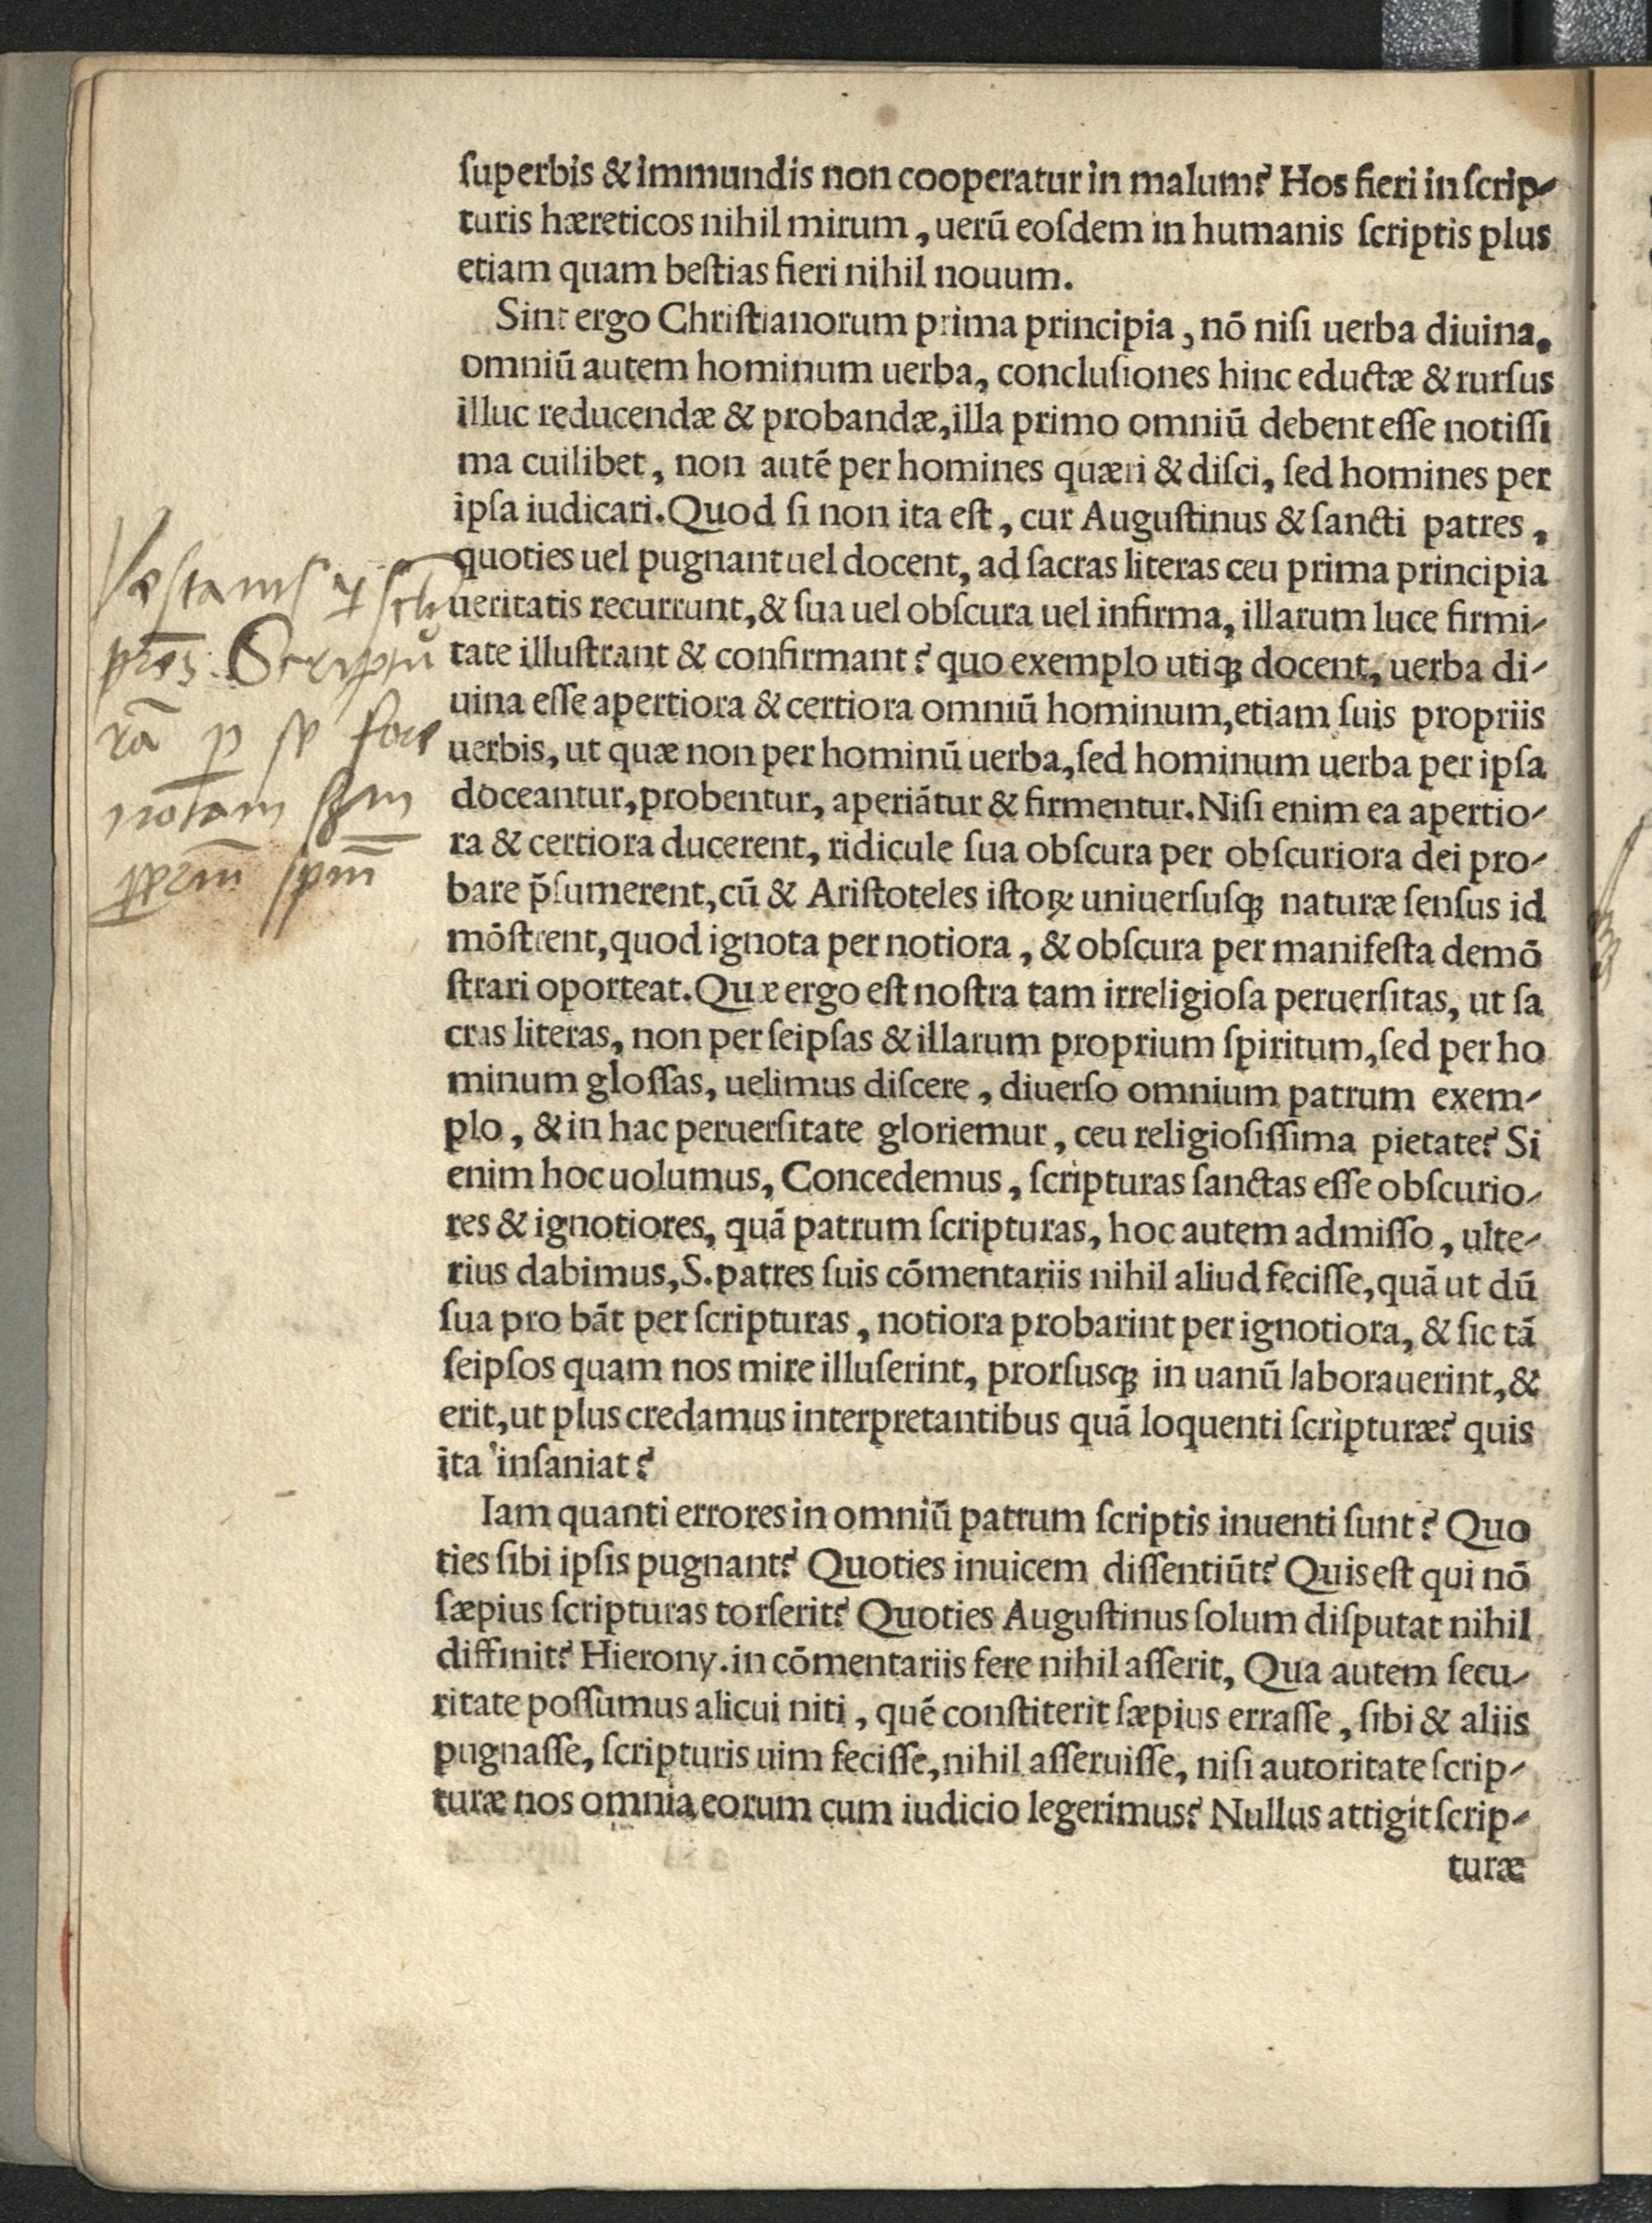 ſuperbis & immundis non cooperatur in malum? Hos fieri in ſcrip-
turis hæreticos nihil mirum, uerū eoſdem in humanis ſcriptis plus
etiam quam beſtias fieri nihil nouum.
Sint ergo Chriſtianorum prima principia, nō niſi uerba diuina.
omniū autem hominum uerba, concluſiones hinc eductæ & rurſus
illuc reducendæ & probandæ, illa primo omniū debent eſſe notiſſi
ma cuilibet, non autē per homines quæri & diſci, ſed homines per
ipſa iudicari. Quod ſi non ita eſt, cur Auguſtinus & ſancti patres,
quoties uel pugnant uel docent, ad ſacras literas ceu prima principia
ueritatis recurrunt, & ſua uel obſcura uel infirma, illarum luce firmi-
tate illuſtrant & confirmant? quo exemplo utiqꝫ docent, uerba di-
uina eſſe apertiora & certiora omniū hominum, etiam ſuis propriis
uerbis, ut quæ non per hominū uerba, ſed hominum uerba per ipſa
doceantur, probentur, aperiātur & firmentur. Niſi enim ea apertio-
ra & certiora ducerent, ridicule ſua obſcura per obſcuriora dei pro-
bare p̄ſumerent, cū & Ariſtoteles iſtoꝝ uniuerſuſqꝫ naturæ ſenſus id
mōſtrent, quod ignota per notiora, & obſcura per manifeſta demō
ſtrari oporteat. Quæ ergo eſt noſtra tam irreligioſa peruerſitas, ut ſa
cras literas, non per ſeipſas & illarum proprium ſpiritum, ſed per ho
minum gloſſas, uelimus diſcere, diuerſo omnium patrum exem-
plo, & in hac peruerſitate gloriemur, ceu religioſiſſima pietate? Si
enim hoc uolumus, Concedemus, ſcripturas ſanctas eſſe obſcurio-
res & ignotiores, quā patrum ſcripturas, hoc autem admiſſo, ulte-
rius dabimus, S. patres ſuis cōmentariis nihil aliud feciſſe, quā ut dū
ſua pro bāt per ſcripturas, notiora probarint per ignotiora, & ſic tā
ſeipſos quam nos mire illuſerint, prorſuſqꝫ in uanū laborauerint, &
erit, ut plus credamus interpretantibus quā loquenti ſcripturæ? quis
ita inſaniat?
Iam quanti errores in omniū patrum ſcriptis inuenti ſunt? Quo
ties ſibi ipſis pugnant? Quoties inuicem diſſentiūt? Quis eſt qui nō
ſæpius ſcripturas torſerit? Quoties Auguſtinus ſolum diſputat nihil
diffinit? Hierony. in cōmentariis fere nihil aſſerit, Qua autem ſecu-
ritate poſſumus alicui niti, quē conſtiterit ſæpius erraſſe, ſibi & aliis
pugnaſſe, ſcripturis uim feciſſe, nihil aſſeruiſſe, niſi autoritate ſcrip-
turæ nos omnia eorum cum iudicio legerimus? Nullus attigit ſcrip-
turæ
prēs. Scriptu
rā ꝑ ſe
notam
ſpm̄